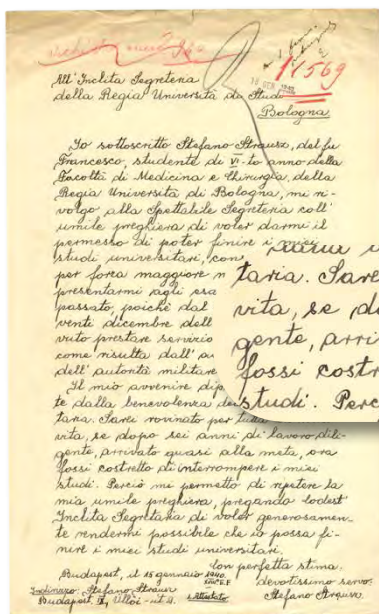 11569
18 GEN. 1940
All' Inclita Segreteria
della Regia Università da Studi
Bologna
Io sottoscritto Stefano Strausz, del fu
Francesco, studente di VI-to anno della
Facoltà di Medicina e Chirurgia, della
Regia Università di Bologna, mi ri-
volgo alla Spettabile Segreteria coll'
umile preghiera di voler darmi il
permesso di poter finire i miei
studi universitari, con
per forza maggiore n
presentarmi agli esa
passato, poichè dal
venti dicembre dell
vuto prestare servizio
come risulta dall' au
dell' autorità militare
Il mio avvenire dip
te dalla benevolenza de
taria. Sarei rovinato per tutta
vita, se dopo sei anni di lavoro dili-
gente, arrivato quasi alla meta, ora
fossi costretto di interrompere i miei
studi. Perciò mi permetto di ripetere la
mia umile preghiera, pregando codest'
Inclita Segretaria di voler generosamen-
te rendermi possibile che io possa fi-
nire i miei studi universitari.
Con perfetta stima.
Budapest, il 15 gennaio 1940
devotissimo servo
Indirizzo: Stefano Strausz
Stefano Strausz
Budapest, IX, Üllői-út
1 Attestato
taria. Sare
vita, se do
gente, arri
fossi costr
studi. Perc